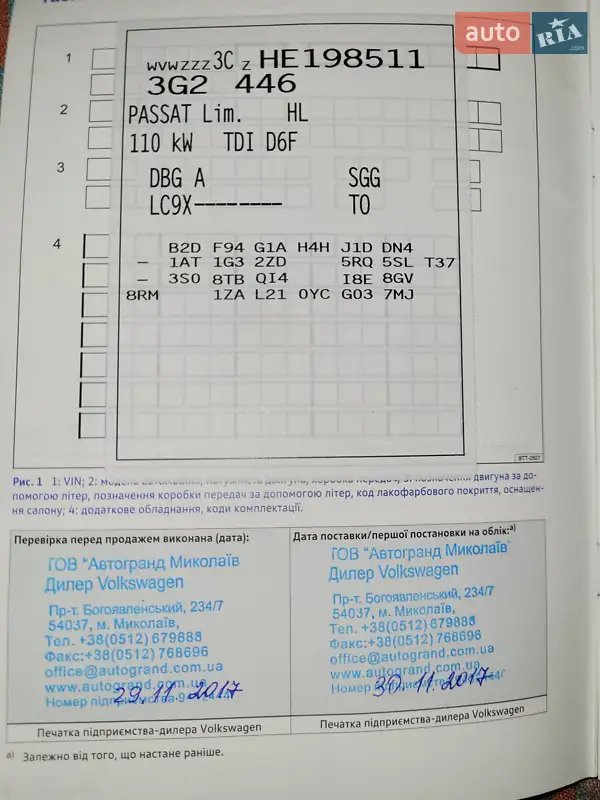 auto RIA .com
1
wvwzzz3C z HE198511
3G2 446
2
PASSAT Lim. HL
110 kW TDI D6F
3
DBG A SGG
LC9X-------- TO
4
B2D F94 G1A H4H J1D DN4
– 1AT 1G3 2ZD 5RQ 5SL T37
– 3S0 8TB QI4 I8E 8GV
8RM 1ZA L21 0YC G03 7MJ
Рис. 1 1: VIN; 2: двигуна за до-
помогою літер, позначення коробки передач за допомогою літер, код лакофарбового покриття, оснащен-
ня салону; 4: додаткове обладнання, коди комплектації.
Перевірка перед продажем виконана (дата):
ТОВ "Автогранд Миколаїв
Дилер Volkswagen
Пр-т. Богоявленський, 234/7
54037, м. Миколаїв,
Тел. +38(0512) 679888
Факс:+38(0512) 768696
office@autogrand.com.ua
www.autogrand.com.ua
Номер підприємства
29.11.2017
Печатка підприємства-дилера Volkswagen
Дата поставки/першої постановки на облік:а)
ТОВ "Автогранд Миколаїв"
Дилер Volkswagen
Пр-т. Богоявленський, 234/7
54037, м. Миколаїв,
Тел. +38(0512) 679888
Факс:+38(0512) 768696
office@autogrand.com.ua
www.autogrand.com.ua
Номер
30.11.2017
Печатка підприємства-дилера Volkswagen
а) Залежно від того, що настане раніше.